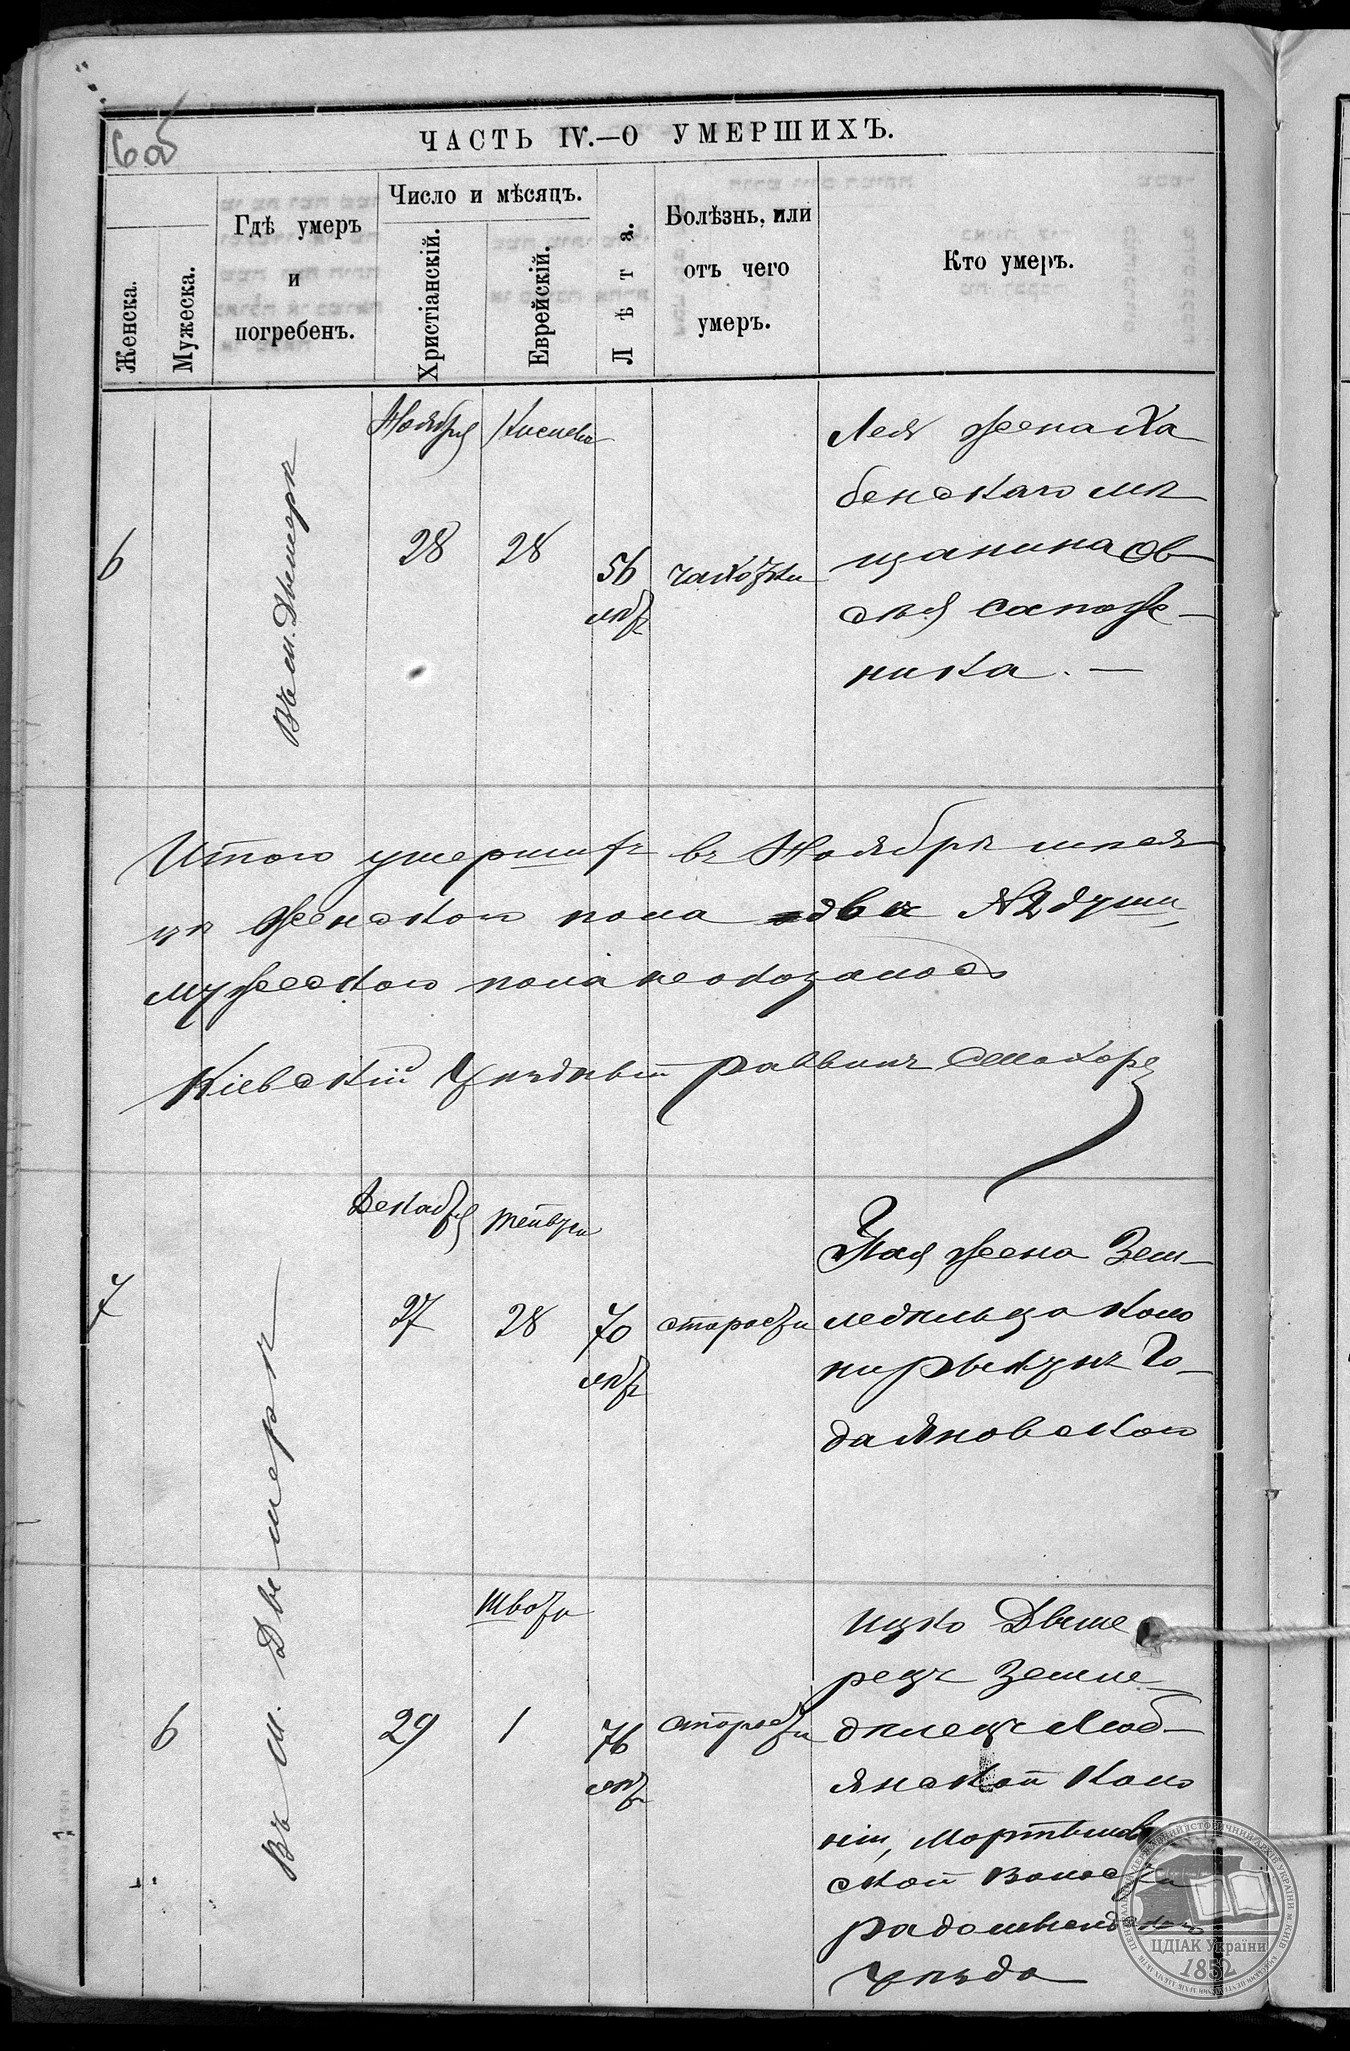 605
ЧАСТЬ IV.—О УМЕРШИХЪ.
Женска.
Мужеска.
Гдѣ умеръ
и
погребенъ.
Число и мѣсяцъ.
Христіанскій.
Еврейскій.
Лѣта.
Болѣзнь, или
отъ чего
умеръ.
Кто умеръ.
6
Въ м. Дымерѣ
Ноября
28
Кислева
28
56
лѣтъ
чахотки
Лея жена Ха
бенскаго мѣ
щанина Ов
сѣя Сапож—
ника. —
Итого умершихъ въ Ноябрѣ мѣся
цѣ женскаго пола двѣ №2 души,
мужескаго пола неоказалось
Кіевскій Уѣздный Раввинъ
7
Въ м. Дымерѣ
Декабря
27
Тейвуса
28
70
лѣтъ
старости
жена Зем—
ледѣльца Коло
ніи Рыкунъ Го—
дановскаго
6
29
Швота
1
76
лѣтъ
старости
Ицко Дыме
рецъ Земле—
дѣлецъ Люб—
янской Коло
ніи, Мартынов
ской Волости
Радомысльскаго
Уѣзда
ЦДІАК України
1852